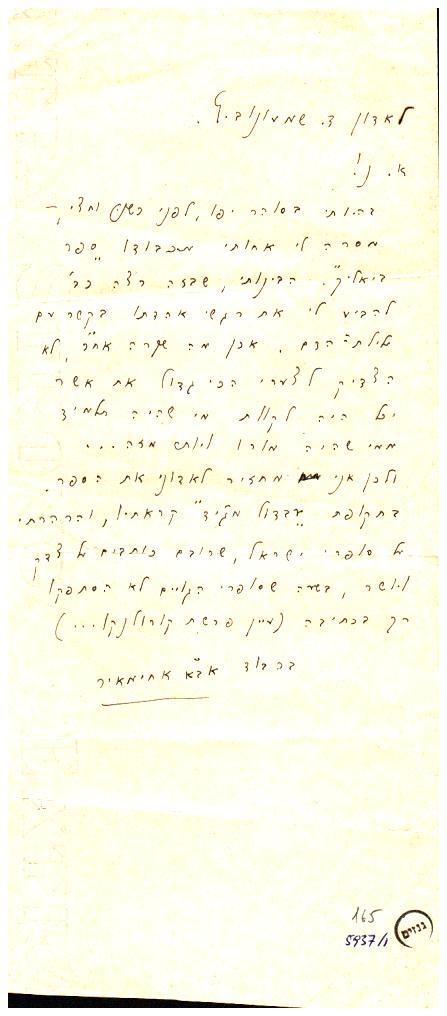 לאדון ד. שמעונוביץ.
א. נ.!
בהיותי בסוהר יפו, לפני כשנה וחצי, –
מסרה לי אחותי מכבודו "ספר
ביאליק". הבינותי, שבזה רצה כב'
להביע לי את רגשי אהדתו בקשר עם
עלילת־הדם. אכן מה שקרה אח"כ, לא
הצדיק לצערי הכי גדול את אשר
יכל היה לקוות מי שהיה תלמיד
ממי שהיה מורו ויותר מזה...
ולכן אני מחזיר לאדוני את הספר.
בתקופת קראתיו, והרהרתי
על סופרי ישראל, שרובם כותבים על צדק
ויושר, בשעה שסופרי הגויים לא הסתפקו
רק בכתיבה (עיין פרשת קורולנקו...)
בכבוד אב"א אחימאיר
165
5937/1
גנזים